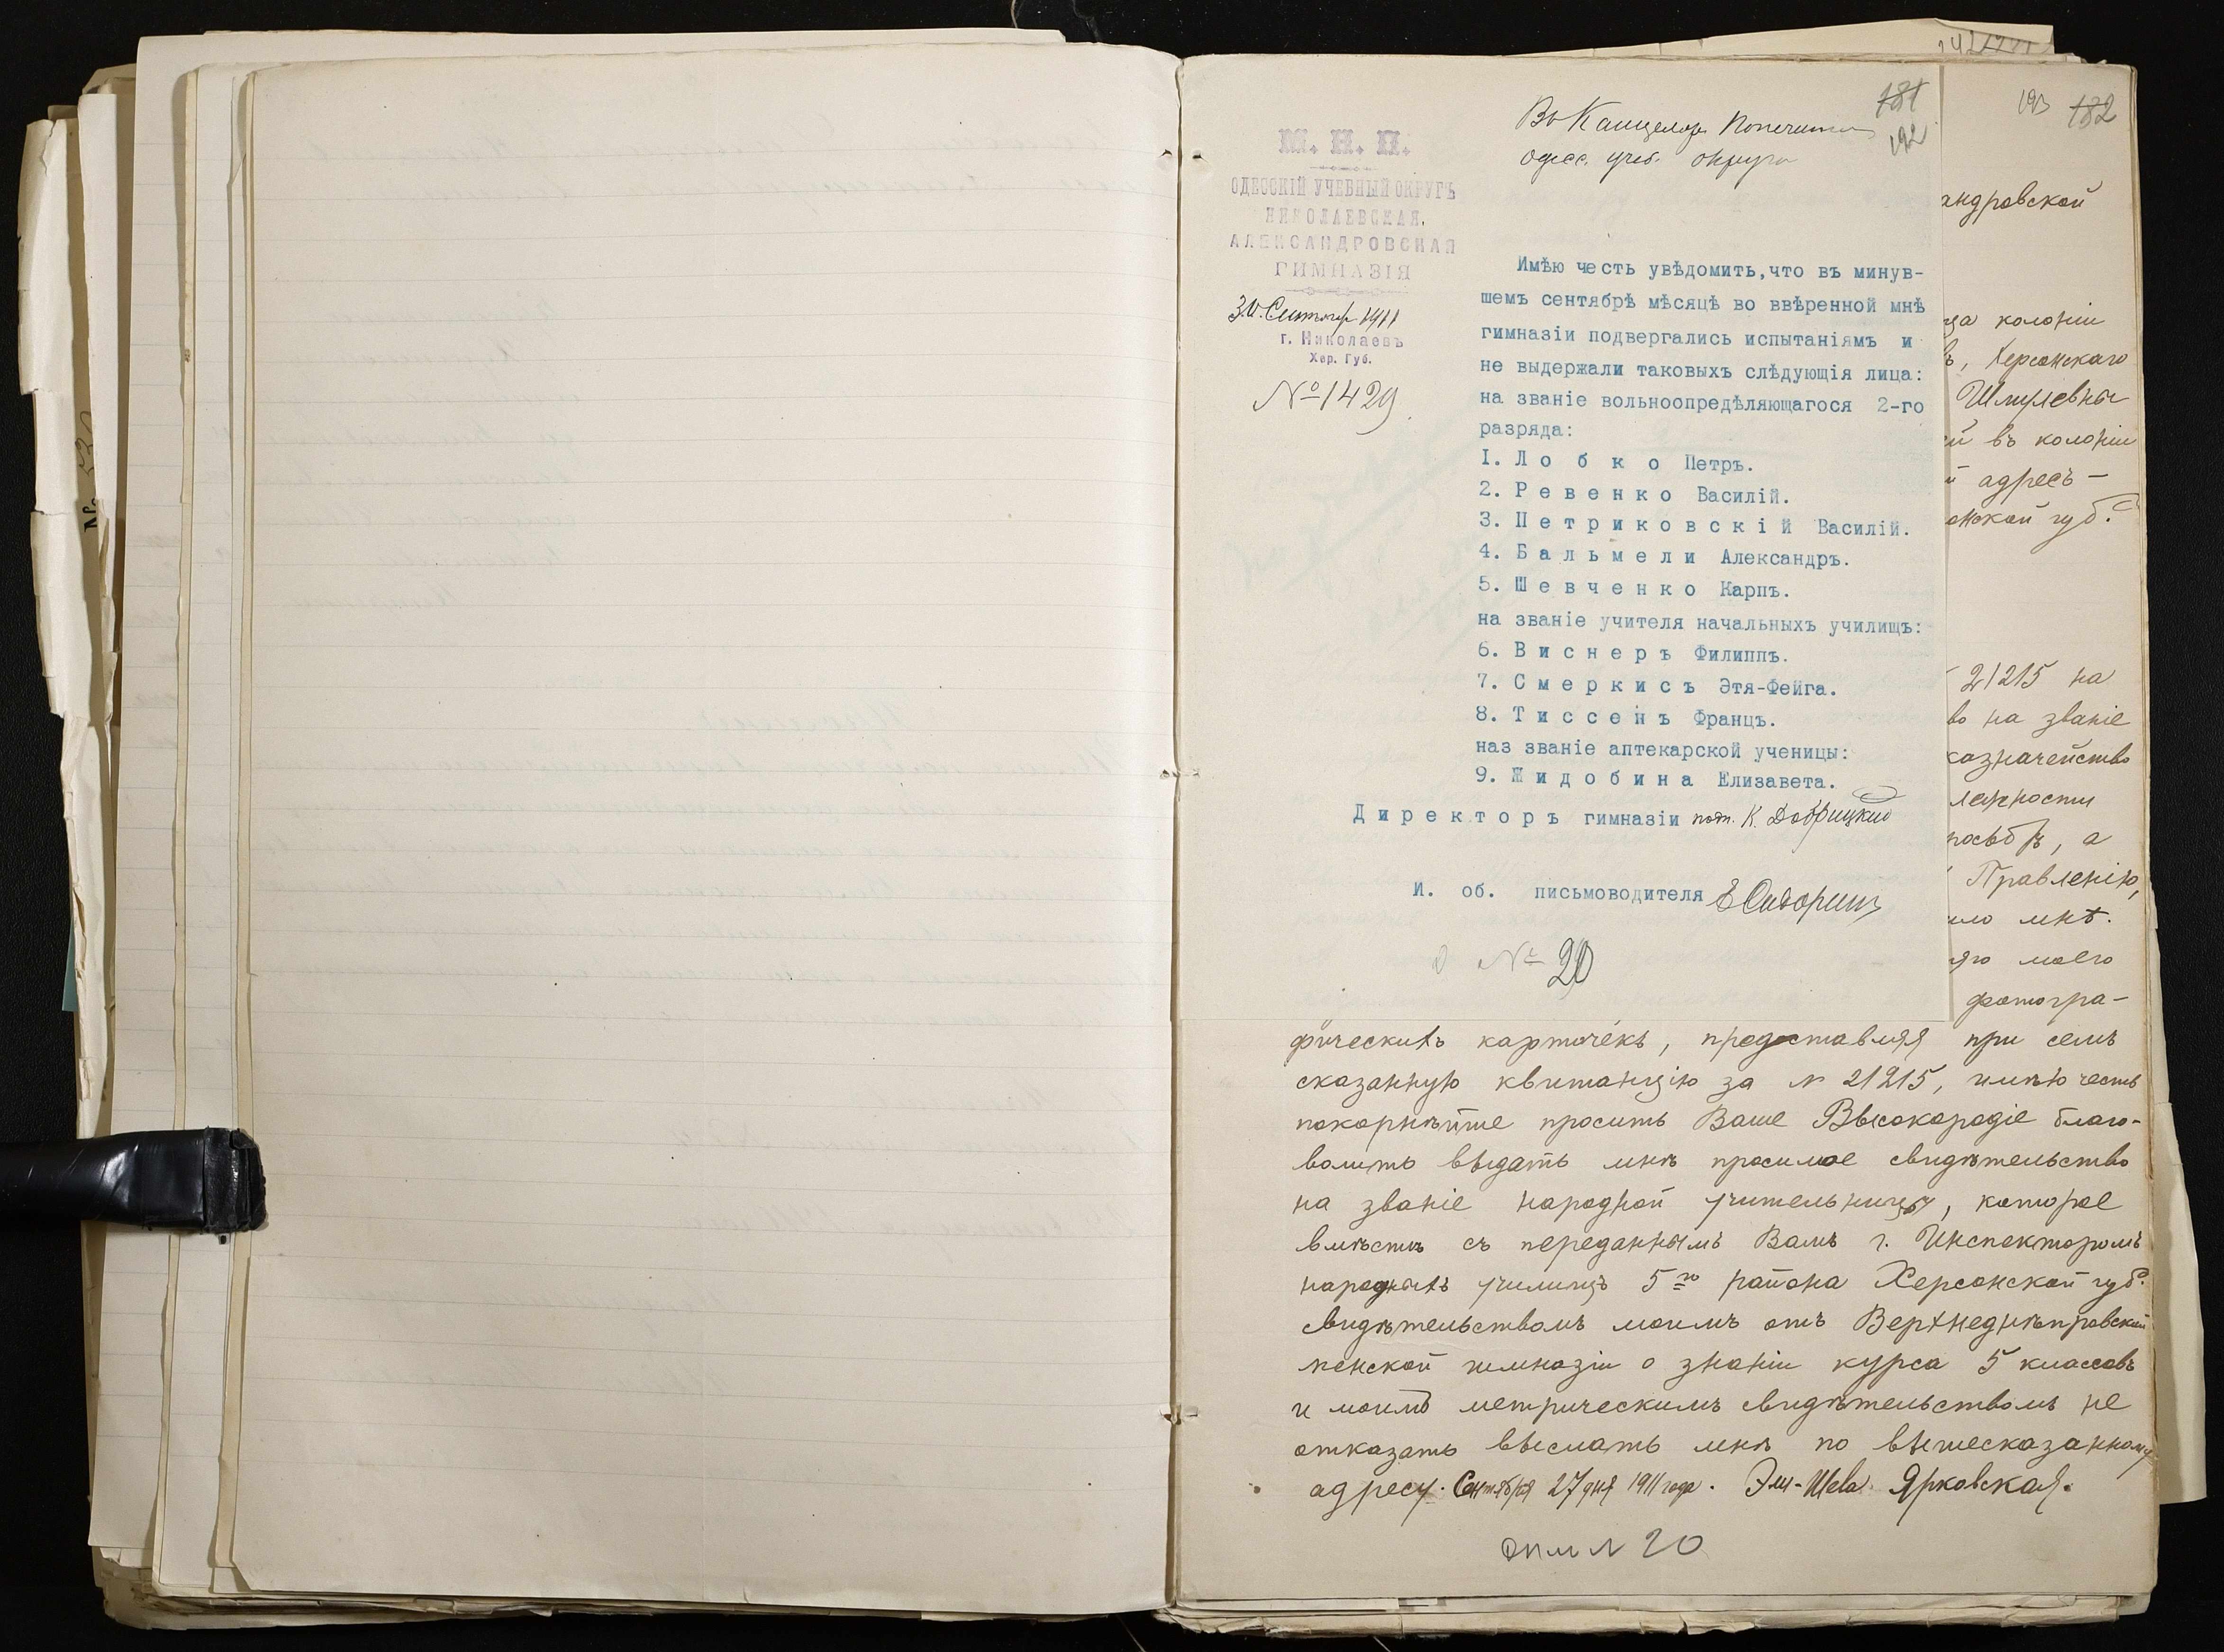 181
192
Въ Канцеляр. Попечит
Одес. учеб. округа
М. Н. П.
ОДЕССКІЙ УЧЕБНЫЙ ОКРУГЪ
НИКОЛАЕВСКАЯ.
АЛЕКСАНДРОВСКАЯ
ГИМНАЗІЯ
30 Сентября 1911
г. Николаевъ
Хер. Губ.
№ 1429
Имѣю честь увѣдомить,что въ минув-
шемъ сентябрѣ мѣсяцѣ во ввѣренной мнѣ
гимназіи подвергались испытаніямъ и
не выдержали таковыхъ слѣдующія лица:
на званіе вольноопредѣляющагося 2-го
разряда:
I. Л о б к о Петръ.
2. Р е в е н к о Василій.
3. П е т р и к о в с к і й Василій.
4. Б а л ь м е л и Александръ.
5. Ш е в ч е н к о Карпъ.
на званіе учителя начальныхъ училищъ:
6. В и с н е р ъ Филиппъ.
7. С м е р к и с ъ Этя-Фейга.
8. Т и с с е н ъ Францъ.
наз званіе аптекарской ученицы:
9. Ж и д о б и н а Елизавета.
Д и р е к т о р ъ гимназіи подп. К. Добрицкій
И. об. письмоводителя Е Сидорин
№ 20
193 182
андровской
ца колоніи
ъ, Херсонскаго
Шмулевны
ей въ колоніи
й адресъ —
онской губ.
21215 на
во на званіе
казначейство
лежности
просьбѣ, а
Правленію,
ило мнѣ.
яго моего
фотогра-
фическихъ карточекъ, предоставляя при семъ
сказанную квитанцію за № 21215, имѣю честь
покорнѣйше просить Ваше Высокородіе благо-
волить выдать мнѣ просимое свидѣтельство
на званіе народной учительницы, которое
вмѣстѣ съ переданнымъ Вамъ г. Инспекторомъ
народныхъ училищъ 5го района Херсонской губ.
свидѣтельствомъ моимъ отъ Верхнеднѣпровской
женской гимназіи о знаніи курса 5 классовъ
и моимъ метрическимъ свидѣтельствомъ не
отказать выслать мнѣ по вышесказанному
адресу. Сентября 27 дня 1911 года. Эли-Шева Ярковская.
№ 20